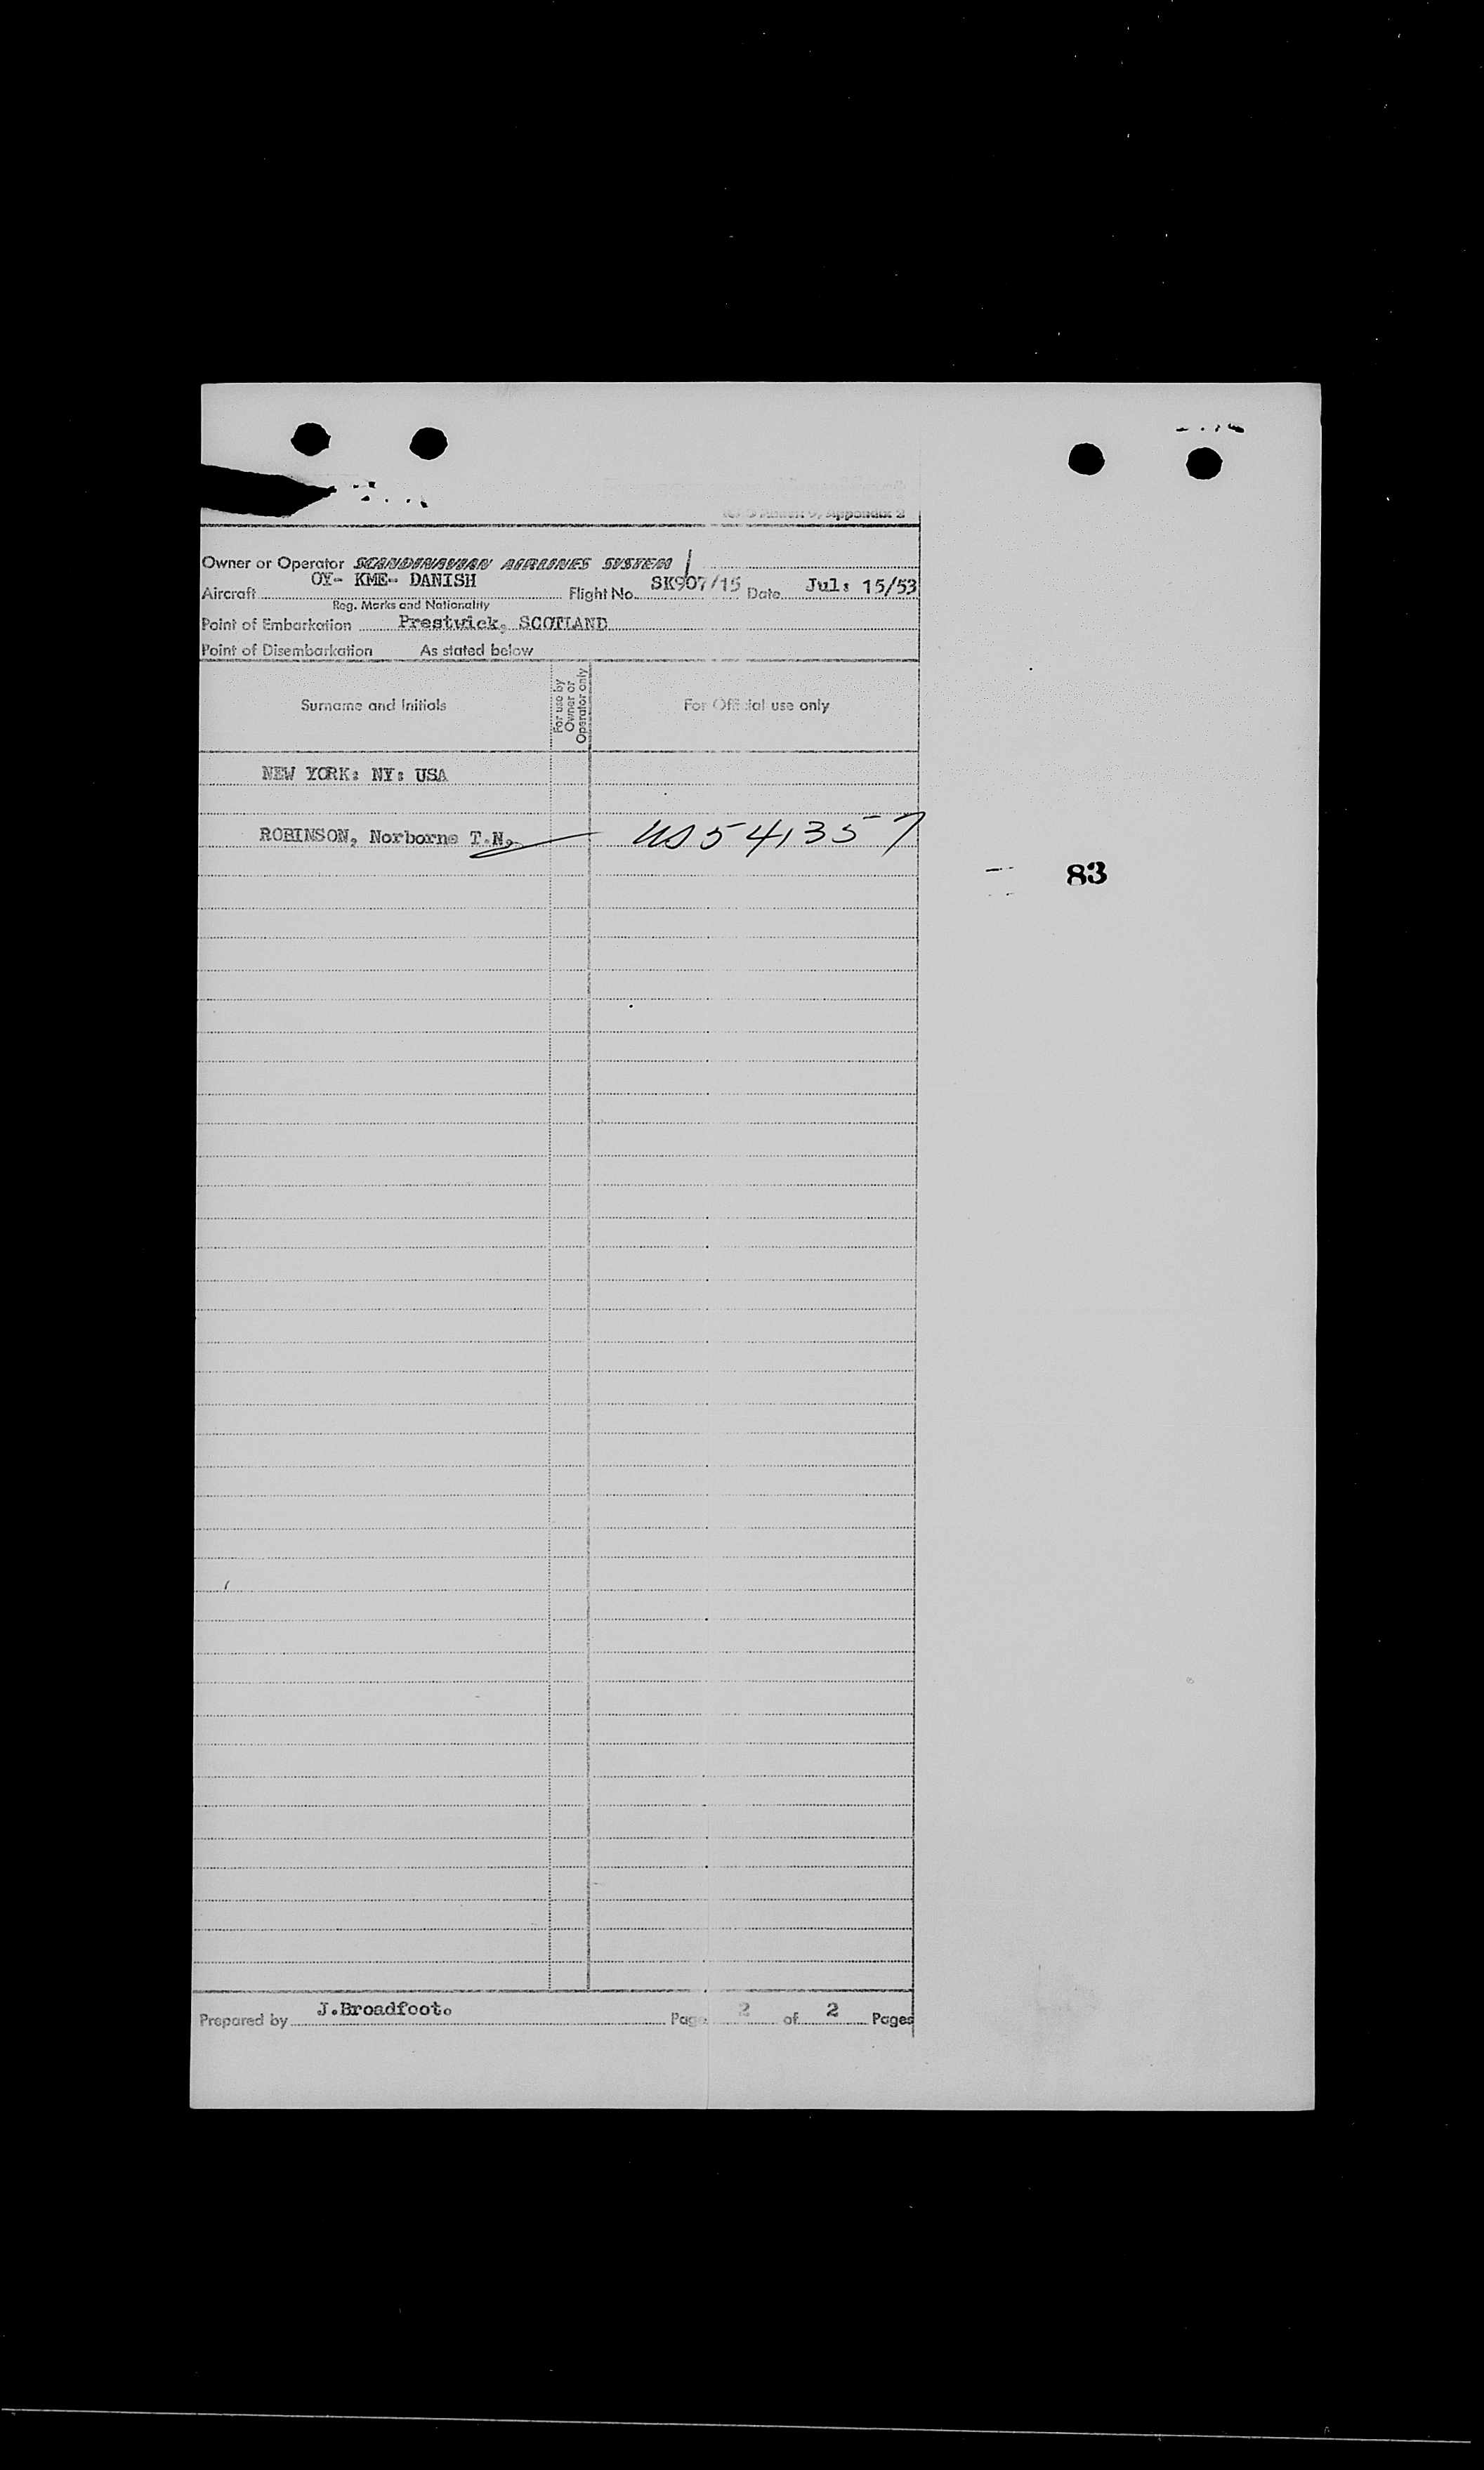 Appendix 2
Owner or Operator SCANDINAVIAN AIRLINES SYSTEM
Aircraft OY- KME- DANISH Flight No. SK907/15 Date Jul: 15/53
Reg. Marks and Nationality
Point of Embarkation Prestwick, SCOTLAND
Point of Disembarkation As stated below
Surname and Initials For use by Owner or Operator only For Official use only
NEW YORK: NY: USA
ROBINSON, Norborne T.N. US541357
83
Prepared by J.Broadfoot. Page 2 of 2 Pages